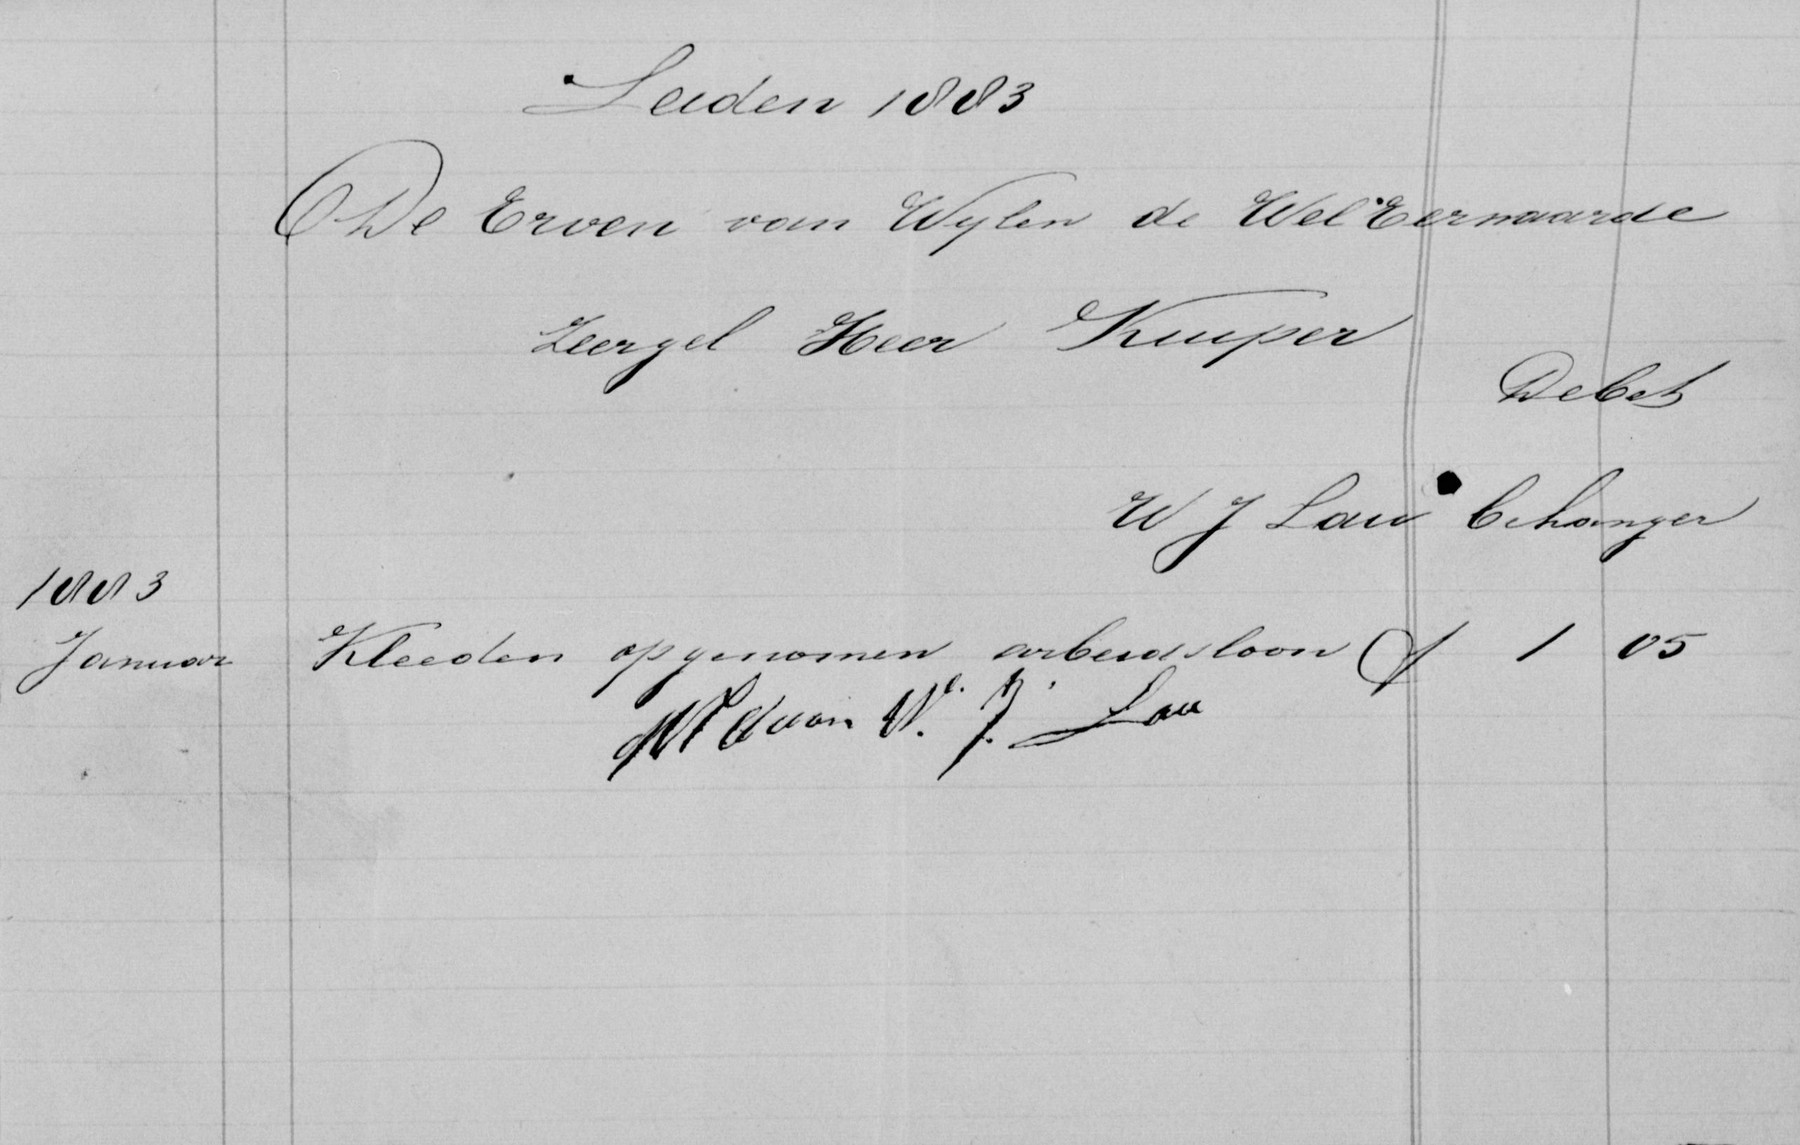 Leiden 1883
De Erven van Wylen de Wel Eerwaarde
Zeergel Heer Kuiper
Debet
W J Lau behanger
1883
Januar Kleeden opgenomen arbeidsloon f 1 05
Vldaan W. J. Lau